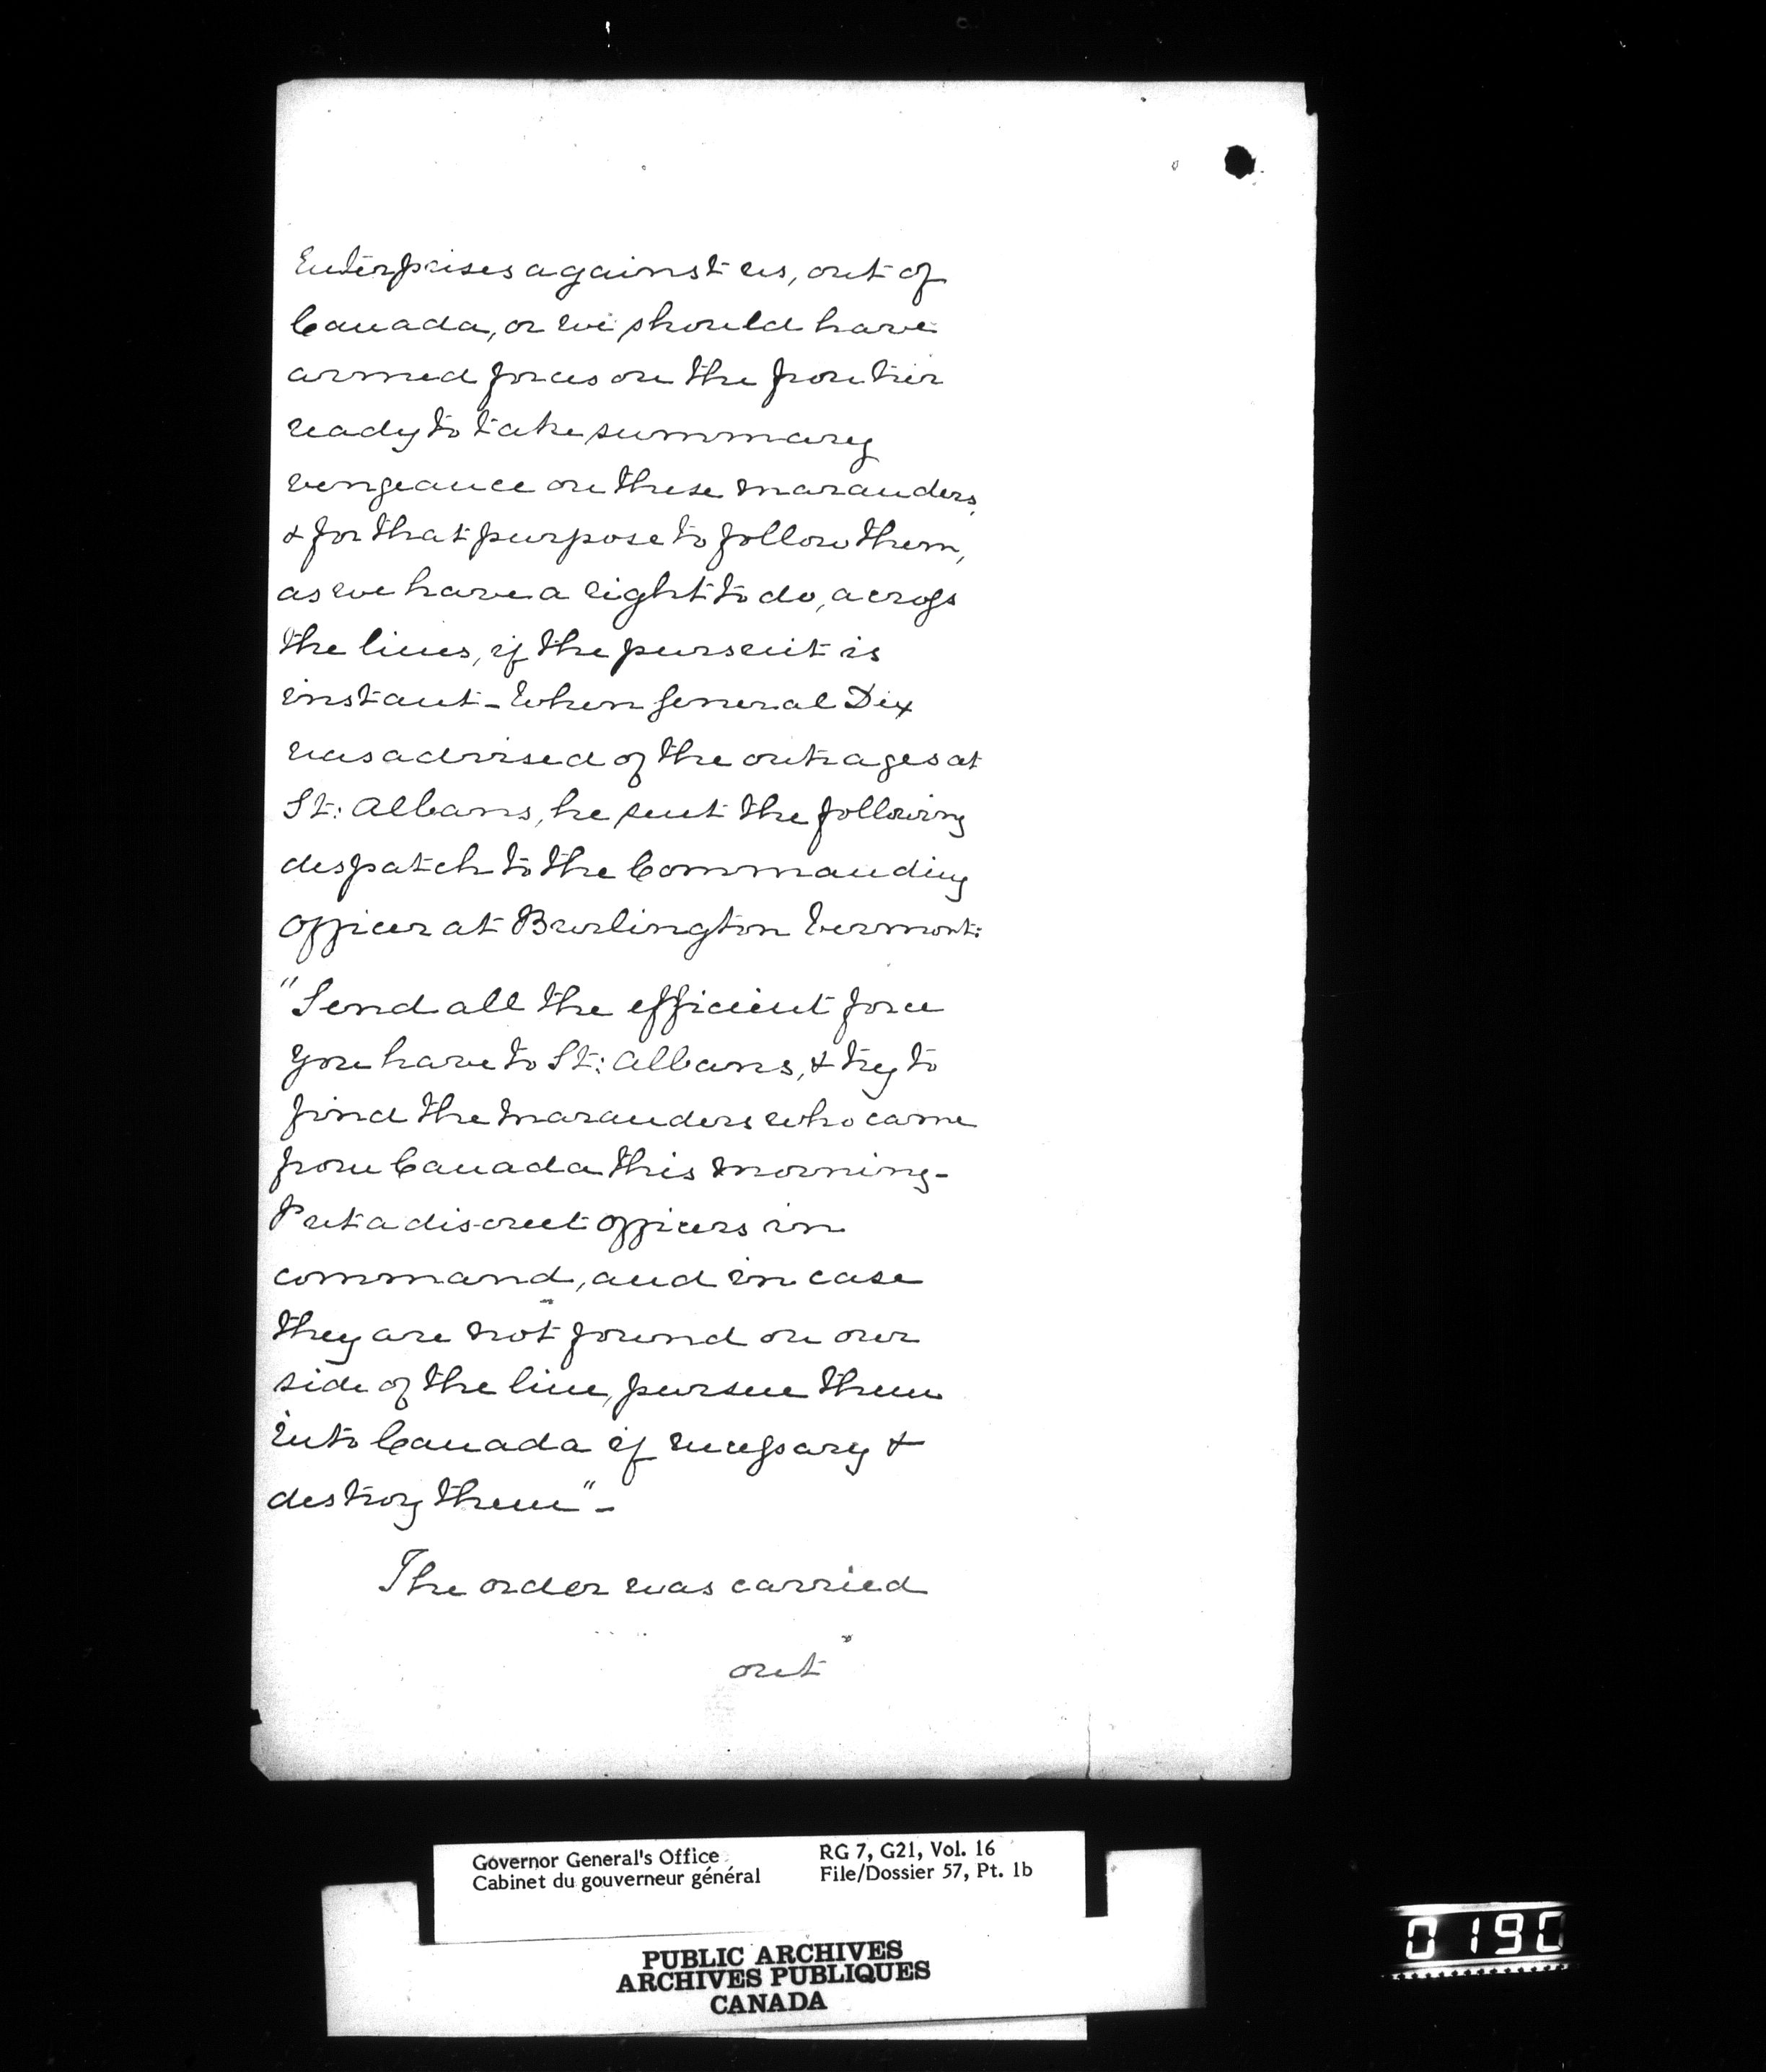 Enterprises against us, out of
Canada, or we should have
armed forces on the frontier
ready to take summary
vengeance on these marauders,
& for that purpose to follow them,
as we have a right to do, across
the lines, if the pursuit is
instant - When General Dix
was advised of the outrages at
St: Albans, he sent the following
despatch to the Commanding
Officer at Burlington Vermont:
"Send all the efficient force
you have to St: Albans, & try to
find the marauders who came
from Canada this morning -
Put a discreet officers in
command, and in case
they are not found on our
side of the line, pursue them
into Canada if necessary &
destroy them" -
The order was carried
out
Governor General's Office
Cabinet du gouverneur général
RG 7, G21, Vol. 16
File/Dossier 57, Pt. 1b
PUBLIC ARCHIVES
ARCHIVES PUBLIQUES
CANADA
0190